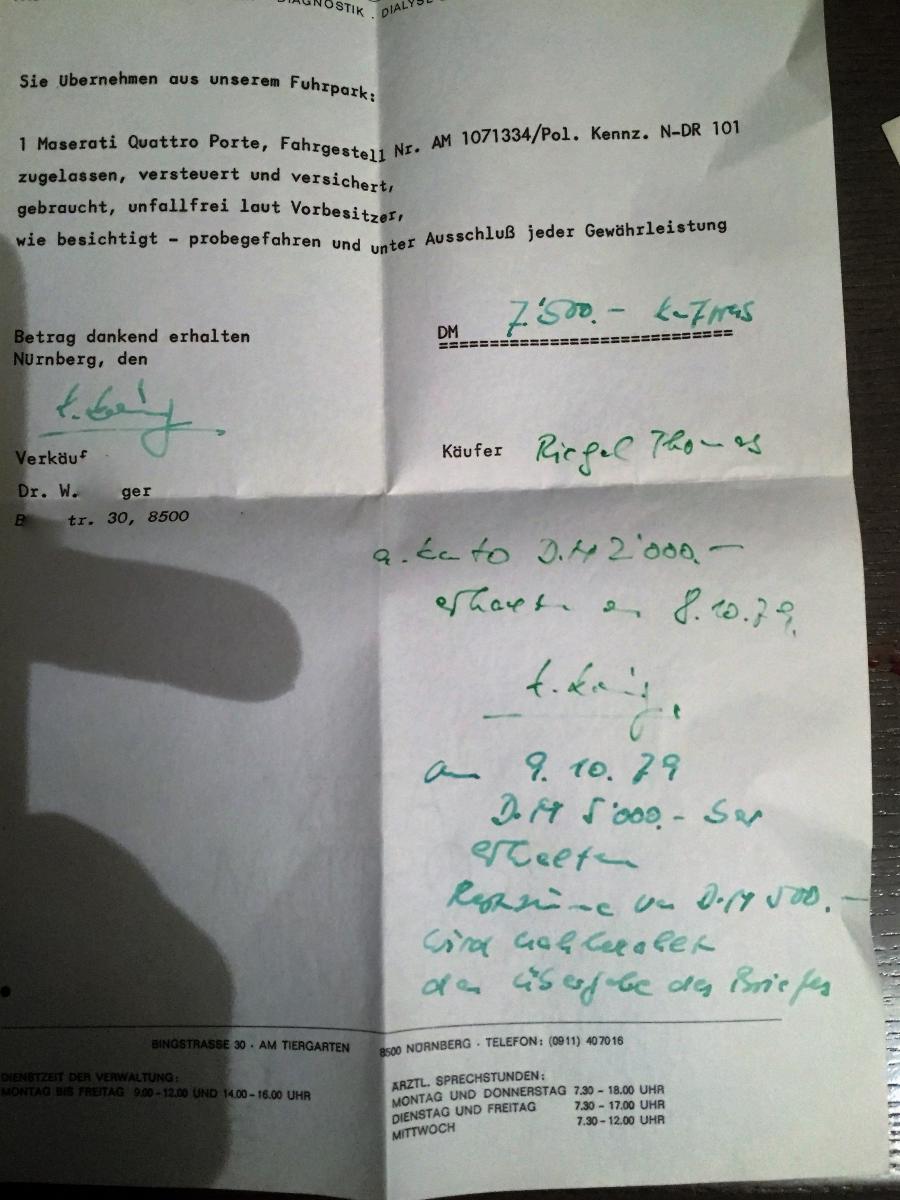 DIAGNOSTIK . DIALYSE
Sie Ubernehmen aus unserem Fuhrpark:
1 Maserati Quattro Porte, Fahrgestell Nr. AM 1071334/Pol. Kennz. N-DR 101
zugelassen, versteuert und versichert,
gebraucht, unfallfrei laut Vorbesitzer,
wie besichtigt - probegefahren und unter Ausschluß jeder Gewährleistung
DM 7'500.-
Betrag dankend erhalten
NUrnberg, den
Verkäuf
Käufer Riegel Thomas
Dr. W. ger
B tr. 30, 8500
a. Konto D.M 2'000.-
erhalten am 8.10.79.
am 9.10.79
D.M 5'000.- bar
erhalten
Restsumme von D.M 500.-
wird nachbezahlt
den Übergabe des Briefes
BINGSTRASSE 30 · AM TIERGARTEN 8500 NÜRNBERG · TELEFON: (0911) 407016
DIENSTZEIT DER VERWALTUNG:
MONTAG BIS FREITAG 9.00-12.00 UND 14.00-16.00 UHR
ÄRZTL. SPRECHSTUNDEN:
MONTAG UND DONNERSTAG 7.30 - 18.00 UHR
DIENSTAG UND FREITAG 7.30 - 17.00 UHR
MITTWOCH 7.30 - 12.00 UHR